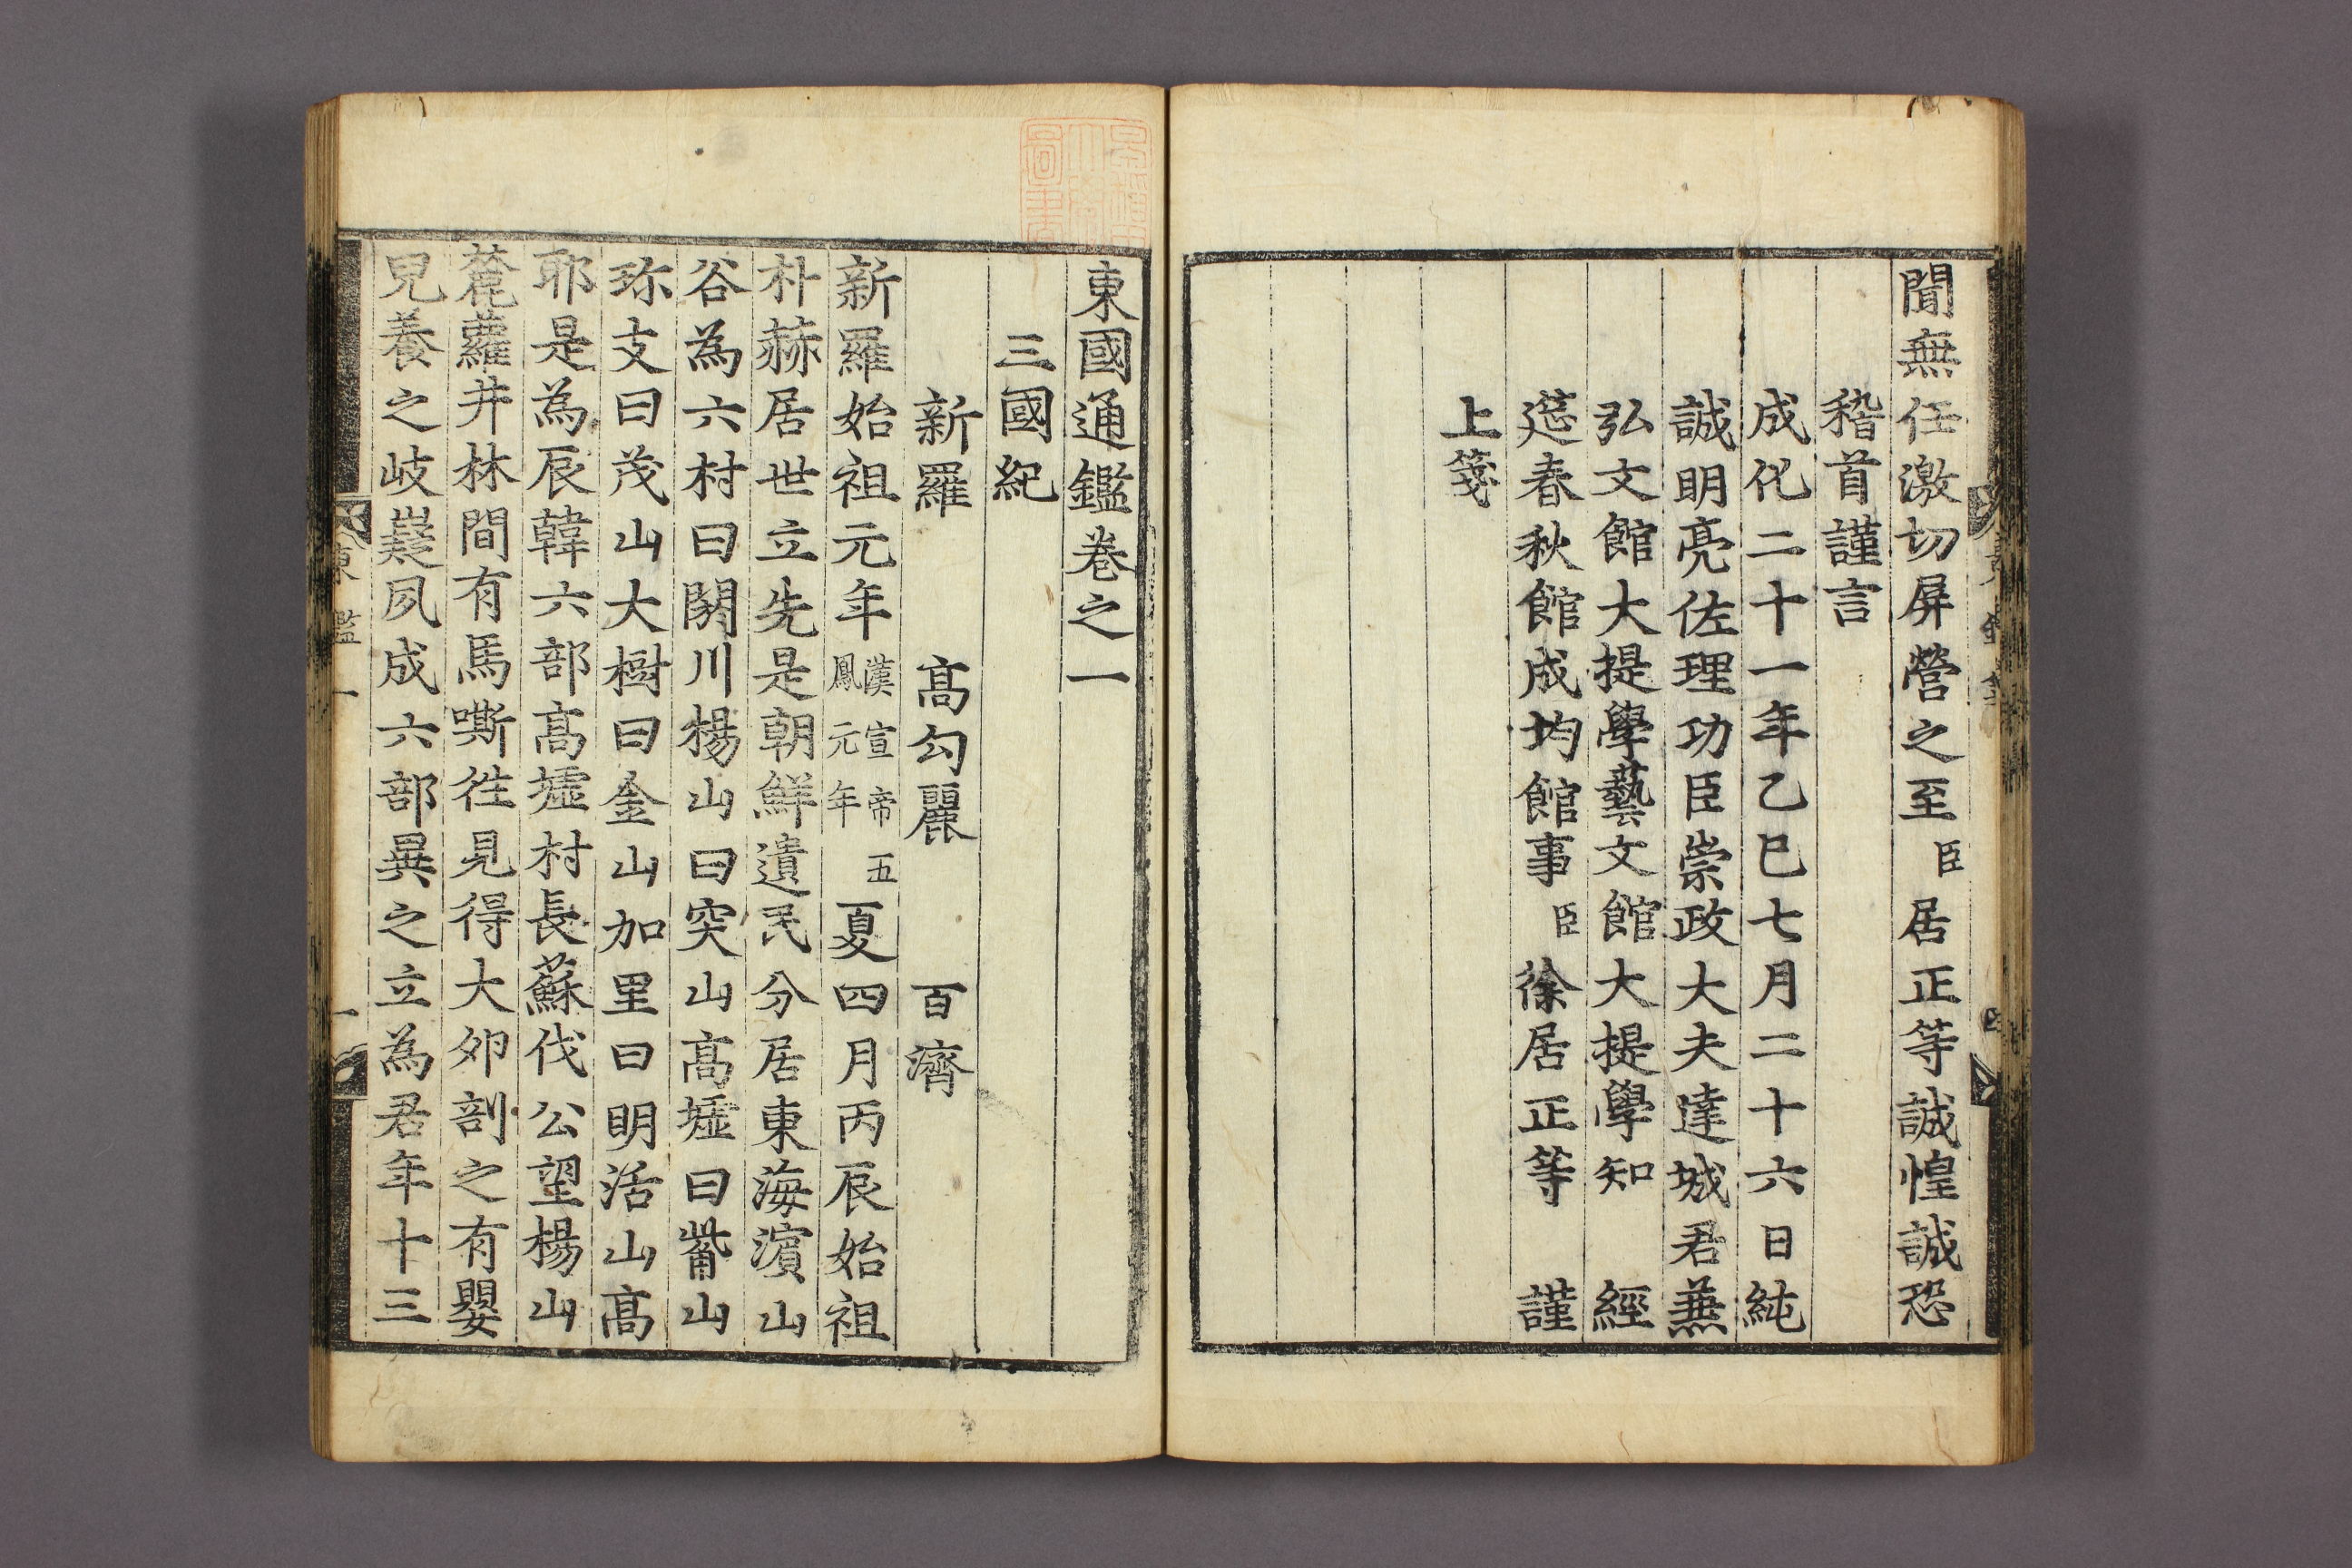 聞無任激切屏營之至臣居正等誠惶誠恐
稽首謹言
成化二十一年乙巳七月二十六日純
誠明亮佐理功臣崇政大夫達城君兼
弘文館大提學藝文館大提學知 經
筵春秋館成均館事臣徐居正等 謹
上箋
東國通鑑卷之一
三國紀
新羅 高勾麗 百濟
新羅始祖元年漢宣帝五鳳元年夏四月丙辰始祖
朴赫居世立先是朝鮮遺民分居東海濱山
谷為六村曰閼川楊山曰突山高墟曰觜山
珍支曰茂山大樹曰金山加里曰明活山高
耶是為辰韓六部高墟村長蘇伐公望楊山
麓蘿井林間有馬嘶徃見得大夘剖之有嬰
兒養之岐嶷夙成六部異之立為君年十三
東鑑一 一